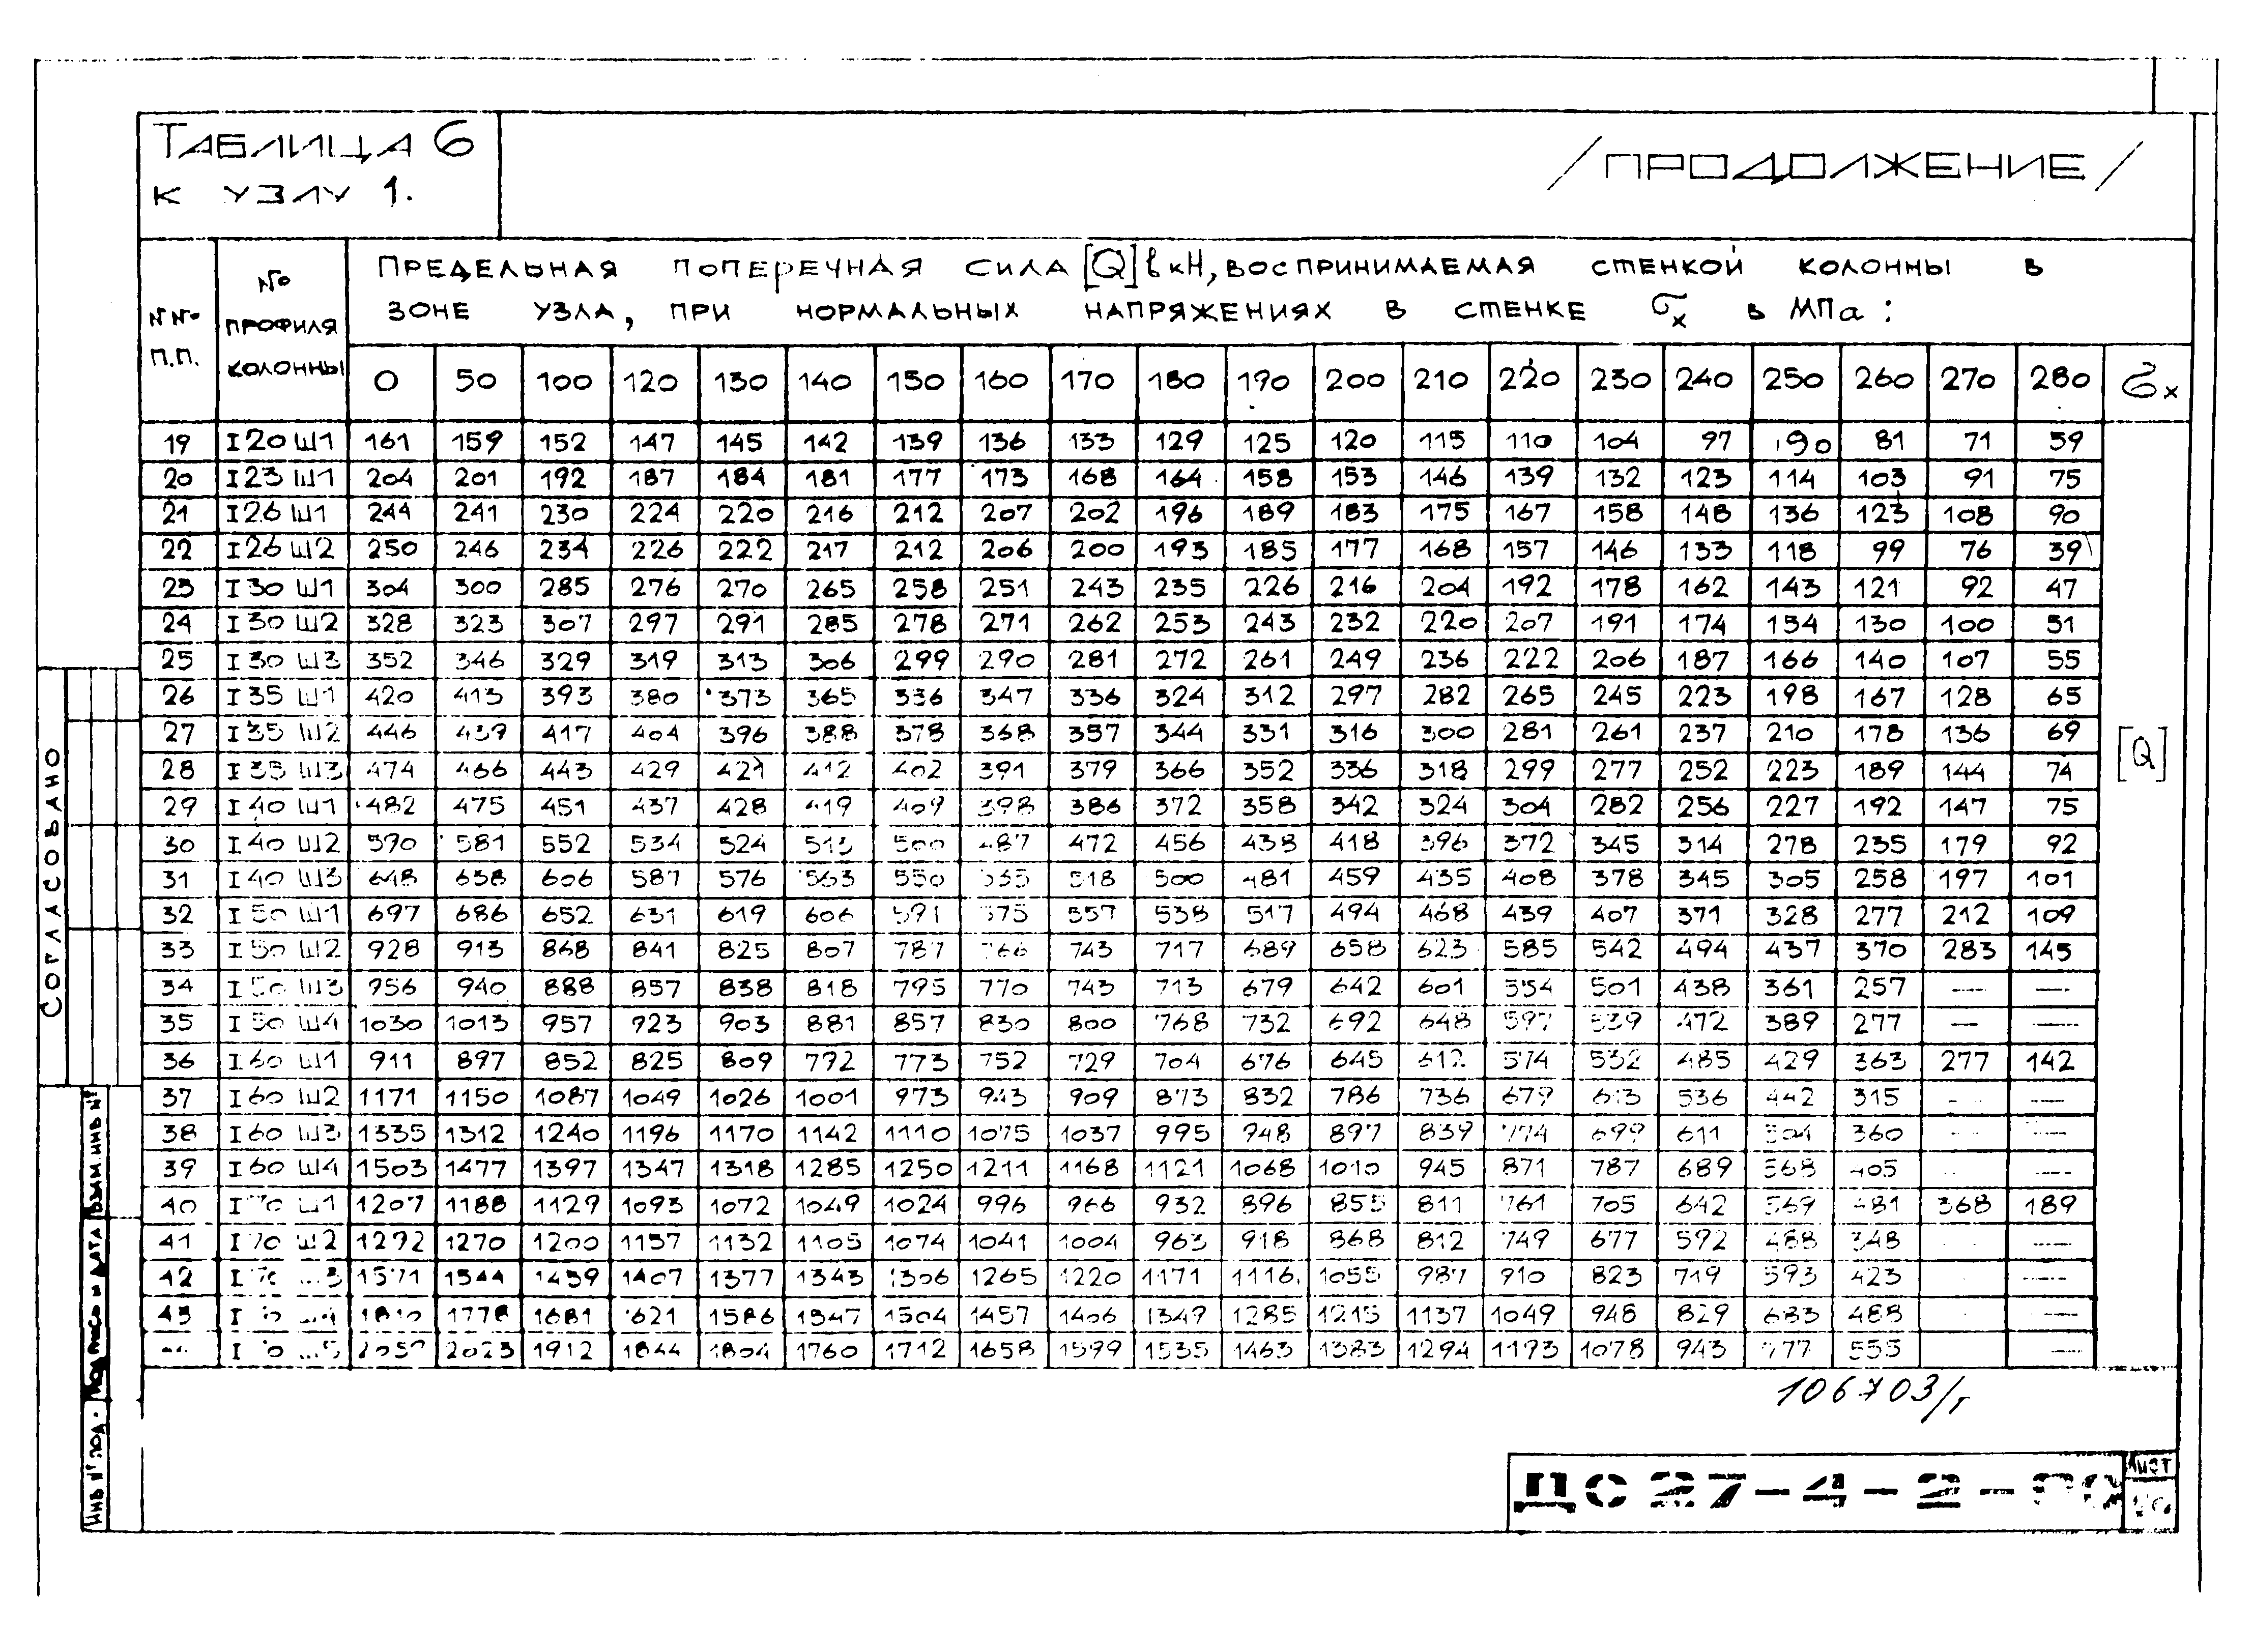 ТАБЛИЦА 6
К УЗЛУ 1.
/ПРОДОЛЖЕНИЕ/
№№ П.П.
№ ПРОФИЛЯ КОЛОННЫ
ПРЕДЕЛЬНАЯ ПОПЕРЕЧНАЯ СИЛА [Q] в кН, ВОСПРИНИМАЕМАЯ СТЕНКОЙ КОЛОННЫ В
ЗОНЕ УЗЛА, ПРИ НОРМАЛЬНЫХ НАПРЯЖЕНИЯХ В СТЕНКЕ σx в МПа:
0 50 100 120 130 140 150 160 170 180 190 200 210 220 230 240 250 260 270 280 σx
19 I 20 Ш1 161 159 152 147 145 142 139 136 133 129 125 120 115 110 104 97 90 81 71 59
20 I 23 Ш1 204 201 192 187 184 181 177 173 168 164 158 153 146 139 132 123 114 103 91 75
21 I 26 Ш1 244 241 230 224 220 216 212 207 202 196 189 183 175 167 158 148 136 123 108 90
22 I 26 Ш2 250 246 234 226 222 217 212 206 200 193 185 177 168 157 146 133 118 99 76 39
23 I 30 Ш1 304 300 285 276 270 265 258 251 243 235 226 216 204 192 178 162 143 121 92 47
24 I 30 Ш2 328 323 307 297 291 285 278 271 262 253 243 232 220 207 191 174 154 130 100 51
25 I 30 Ш3 352 346 329 319 313 306 299 290 281 272 261 249 236 222 206 187 166 140 107 55
26 I 35 Ш1 420 413 393 380 373 365 356 347 336 324 312 297 282 265 245 223 198 167 128 65
27 I 35 Ш2 446 439 417 404 396 388 378 368 357 344 331 316 300 281 261 237 210 178 136 69
28 I 35 Ш3 474 466 443 429 421 412 402 391 379 366 352 336 318 299 277 252 223 189 144 74
[Q]
29 I 40 Ш1 482 475 451 437 428 419 409 398 386 372 358 342 324 304 282 256 227 192 147 75
30 I 40 Ш2 590 581 552 534 524 513 500 487 472 456 438 418 396 372 345 314 278 235 179 92
31 I 40 Ш3 648 638 606 587 576 563 550 535 518 500 481 459 435 408 378 345 305 258 197 101
32 I 50 Ш1 697 686 652 631 619 606 591 575 557 538 517 494 468 439 407 371 328 277 212 109
33 I 50 Ш2 928 913 868 841 825 807 787 766 743 717 689 658 623 585 542 494 437 370 283 145
34 I 50 Ш3 956 940 888 857 838 818 795 770 743 713 679 642 601 554 501 438 361 257 — —
35 I 50 Ш4 1030 1013 957 923 903 881 857 830 800 768 732 692 648 597 539 472 389 277 — —
36 I 60 Ш1 911 897 852 825 809 792 773 752 729 704 676 645 612 574 532 485 429 363 277 142
37 I 60 Ш2 1171 1150 1087 1049 1026 1001 973 943 909 873 832 786 736 679 613 536 442 315 — —
38 I 60 Ш3 1335 1312 1240 1196 1170 1142 1110 1075 1037 995 948 897 839 774 699 611 504 360 — —
39 I 60 Ш4 1503 1477 1397 1347 1318 1285 1250 1211 1168 1121 1068 1010 945 871 787 689 568 405 — —
40 I 70 Ш1 1207 1188 1129 1093 1072 1049 1024 996 966 932 896 855 811 761 705 642 569 481 368 189
41 I 70 Ш2 1292 1270 1200 1157 1132 1105 1074 1041 1004 963 918 868 812 749 677 592 488 348 —
42 I 70 Ш3 1571 1544 1459 1407 1377 1343 1306 1265 1220 1171 1116 1055 987 910 823 719 593 423 —
43 I 1810 1778 1681 1621 1586 1547 1504 1457 1406 1349 1285 1215 1137 1049 948 829 683 488 —
I 2023 1912 1844 1804 1760 1712 1658 1599 1535 1463 1383 1294 1193 1078 943 777 555 —
106703/1
СОГЛАСОВАНО
ИНВ № ПОД. ПОДПИСЬ И ДАТА ВЗАМ. ИНВ №
ДС 27-4-2-
ЛИСТ